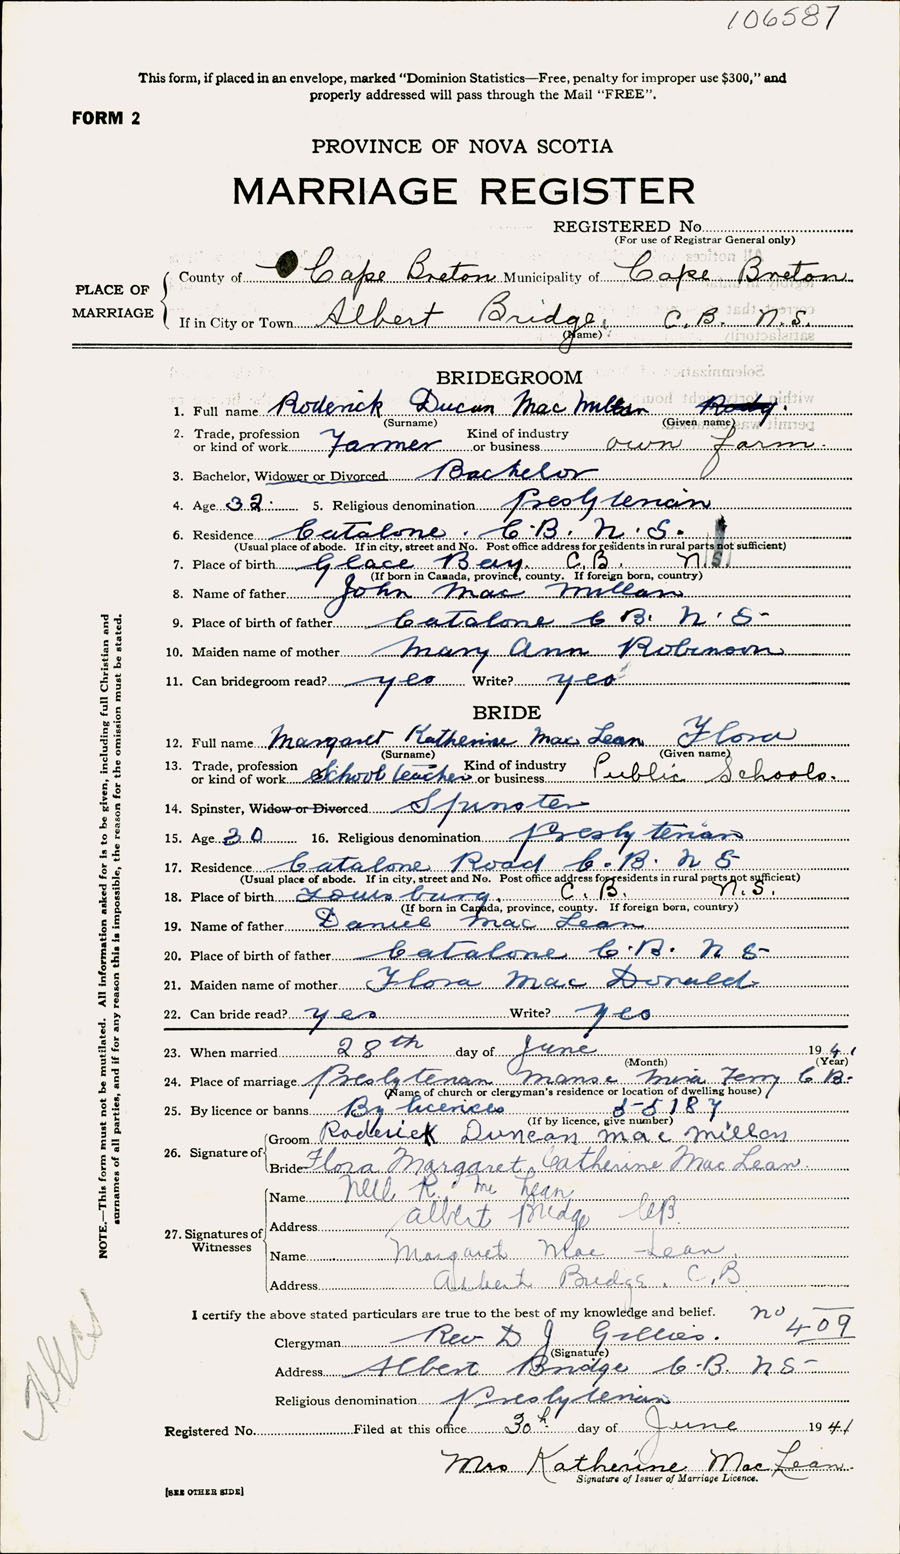 106587
This form, if placed in an envelope, marked "Dominion Statistics—Free, penalty for improper use $300," and
properly addressed will pass through the Mail "FREE".
FORM 2
PROVINCE OF NOVA SCOTIA
MARRIAGE REGISTER
REGISTERED No
(For use of Registrar General only)
PLACE OF MARRIAGE
County of Cape Breton Municipality of Cape Breton
If in City or Town Albert Bridge, C.B. N.S.
(Name)
BRIDEGROOM
1. Full name Roderick Ducan Mac Millan
(Surname) (Given name)
2. Trade, profession or kind of work Farmer Kind of industry or business own farm.
3. Bachelor, Widower or Divorced Bachelor
4. Age 32. 5. Religious denomination Presbyterian
6. Residence Catalone. C.B. N.S.
(Usual place of abode. If in city, street and No. Post office address for residents in rural parts not sufficient)
7. Place of birth Glace Bay C.B. N.S.
(If born in Canada, province, county. If foreign born, country)
8. Name of father John Mac Millan
9. Place of birth of father Catalone C B. N.S-
10. Maiden name of mother Mary Ann Robinson
11. Can bridegroom read? yes Write? yes
BRIDE
12. Full name Margaret Katherine Mac Lean Flora
(Surname) (Given name)
13. Trade, profession or kind of work School teacher Kind of industry or business Public Schools.
14. Spinster, Widow or Divorced Spinster
15. Age 30 16. Religious denomination Presbyterian
17. Residence Catalone Road C.B. N S
(Usual place of abode. If in city, street and No. Post office address for residents in rural parts not sufficient)
18. Place of birth Louisburg, C.B. N.S.
(If born in Canada, province, county. If foreign born, country)
19. Name of father Daniel Mac Lean
20. Place of birth of father Catalone C.B. N S-
21. Maiden name of mother Flora Mac Donald
22. Can bride read? yes Write? yes
23. When married 28th day of June 1941
(Month) (Year)
24. Place of marriage Presbyterian manse Mira Ferry C B-
(Name of church or clergyman's residence or location of dwelling house)
25. By licence or banns By licences 55187
(If by licence, give number)
26. Signature of Groom Roderick Duncan Mac Millan
Bride Flora Margaret Catherine Mac Lean.
27. Signatures of Witnesses
Name Neil R. Mc Lean
Address Albert Bridge CB.
Name Margaret Mac Lean.
Address Albert Bridge. C.B
I certify the above stated particulars are true to the best of my knowledge and belief. no 409
Clergyman Rev D J Gillies.
(Signature)
Address Albert Bridge C.B. N S-
Religious denomination Presbyterian
Registered No. Filed at this office 30th day of June 1941
Mrs Katherine Mac Lean.
Signature of Issuer of Marriage Licence.
[SEE OTHER SIDE]
NOTE.—This form must not be mutilated. All information asked for is to be given, including full Christian and
surnames of all parties, and if for any reason this is impossible, the reason for the omission must be stated.